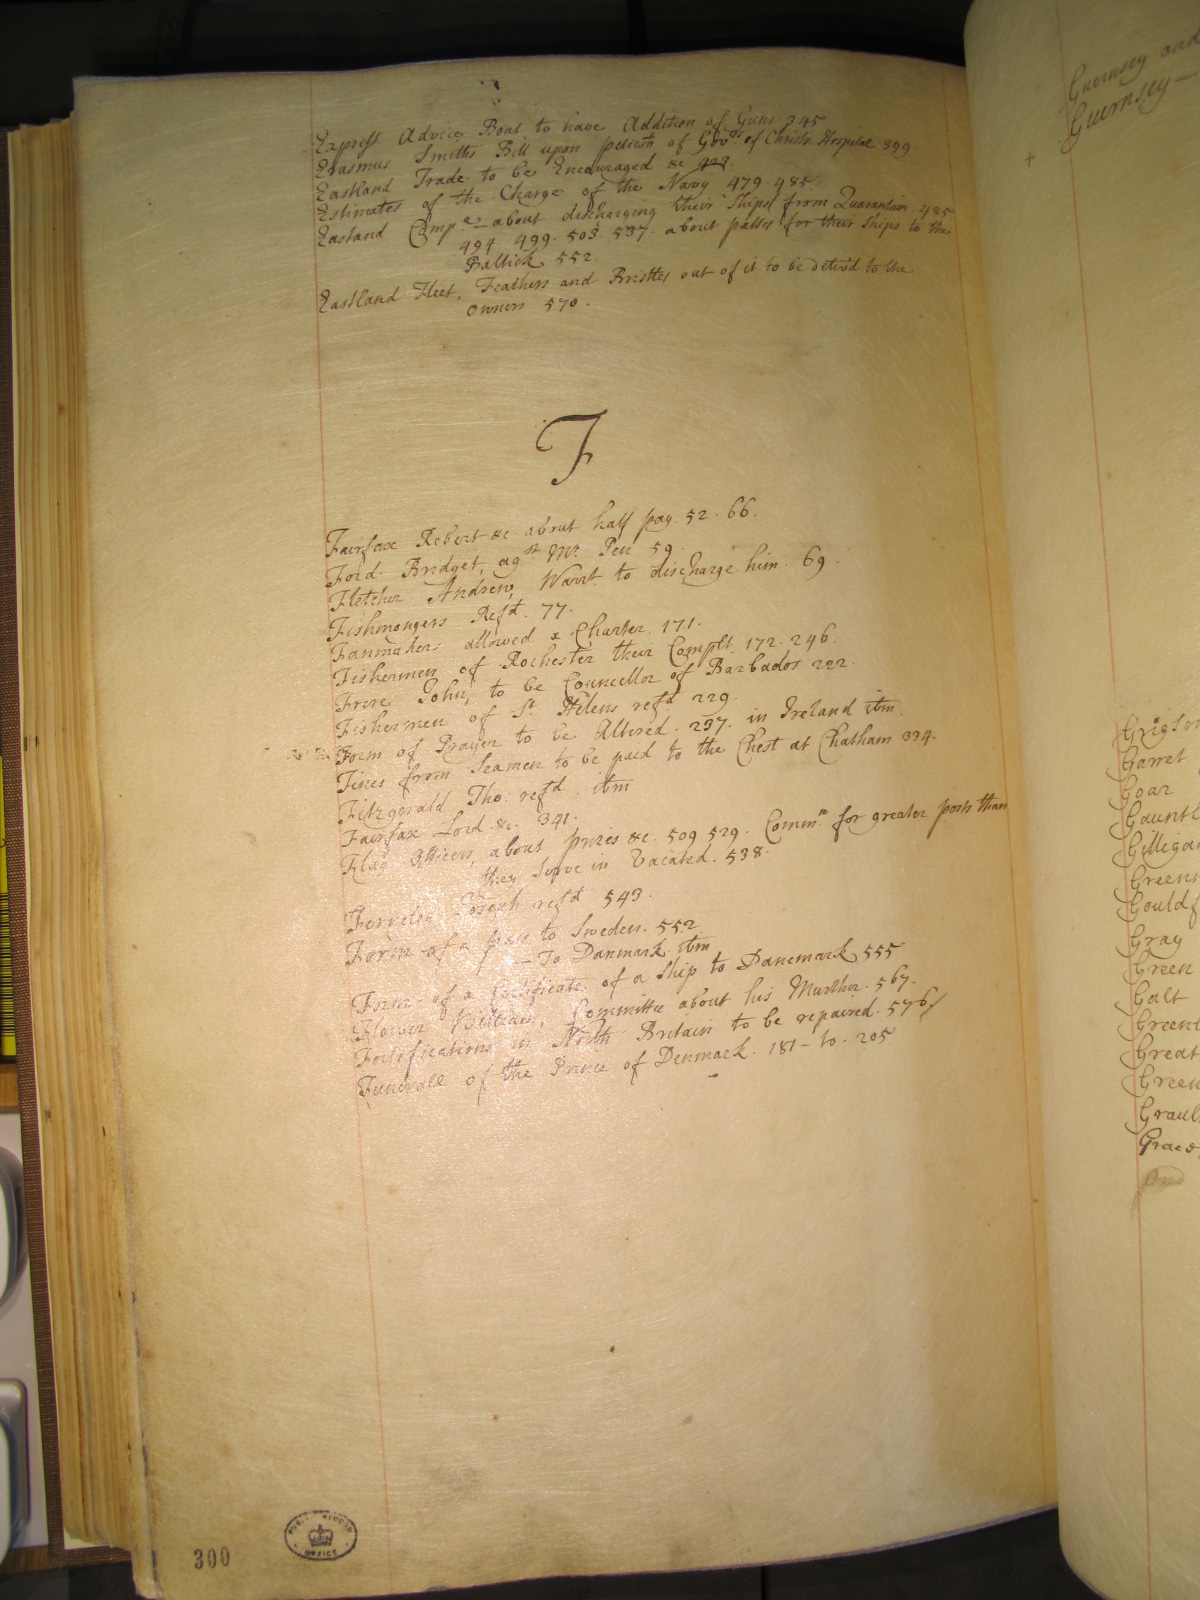 Express Advice Boat to have Addition of Guns 345
Erasmus Smiths Bill upon peticon of Govrs. of Christs Hospital 399.
Eastland Trade to be Encouraged &c 422.
Estimates of the Charge of the Navy 479. 485.
Eastand Comp.a about discharging their Ships from Quarantain. 485
494. 499. 503. 537. about passes for their Ships to the
Baltick 552.
Eastland Fleet, Feathers and Bristles out of it to be deliv'd. to the
Owners 570.
F
Fairfax Robert &c about half pay. 52. 66.
Ford. Bridget, agst. Mr. Pen 59
Fletcher Andrew, Warrt. to discharge him. 69.
Fishmongers Refd. 77.
Fanmakers allowed a Charter. 171.
Fishermen of Rochester their Complt. 172. 246.
Frere John, to be Councellor of Barbados 222.
Fishermen of St. Helens refd. 229.
Form of Prayer to be Altered. 237. in Ireland itm.
Fines from Seamen to be paid to the Chest at Chatham 334.
Fitzgerald Tho: refd. itm
Fairfax Lord &c. 341.
Flag Officers, about prizes &c. 509 529. Commns. for greater posts than
they serve in Vacated. 538.
Joseph refd. 543.
Form of a pass to Sweden. 552.
— To Danmark itm
Form of a Certificate of a Ship to Danemark 555
Flower William, Committee about his Murther. 567.
Fortifications in North Britain to be repaired. 576/
Funerall of the Prince of Denmark. 181 - to. 205
300
PUBLIC RECORD OFFICE
Guernsey and
Guernsey —
Garret
Goar
Gauntl
Gilligan
Green
Gouldf
Gray
Green
Galt
Green
Great
Green
Graul